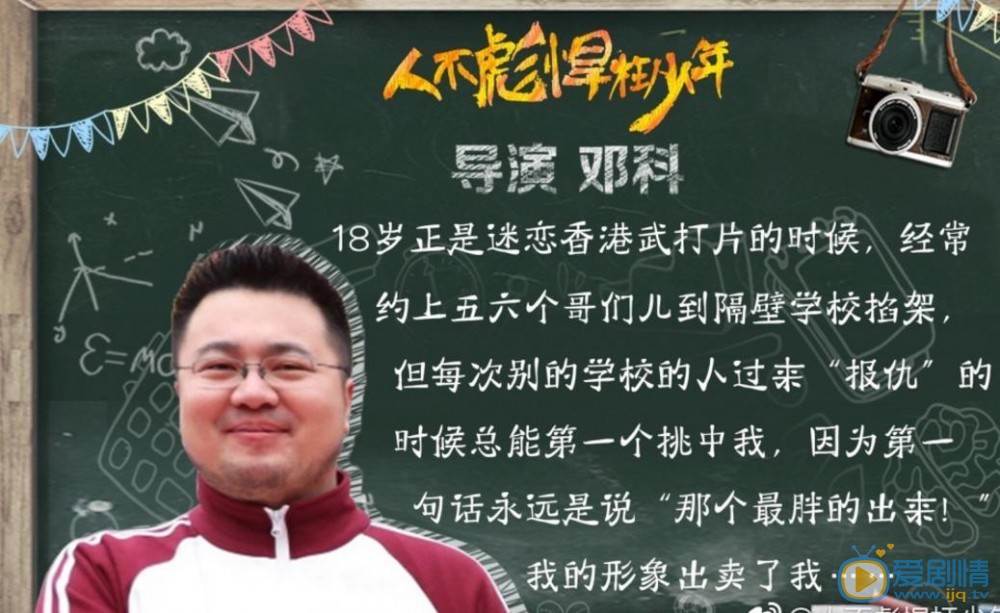 人不彪悍枉少年
导演 邓科
18岁正是迷恋香港武打片的时候，经常
约上五六个哥们儿到隔壁学校掐架，
但每次别的学校的人过来“报仇”的
时候总能第一个挑中我，因为第一
句话永远是说“那个最胖的出来！”
我的形象出卖了我……
爱剧情
www.ijq.tv
E=MC